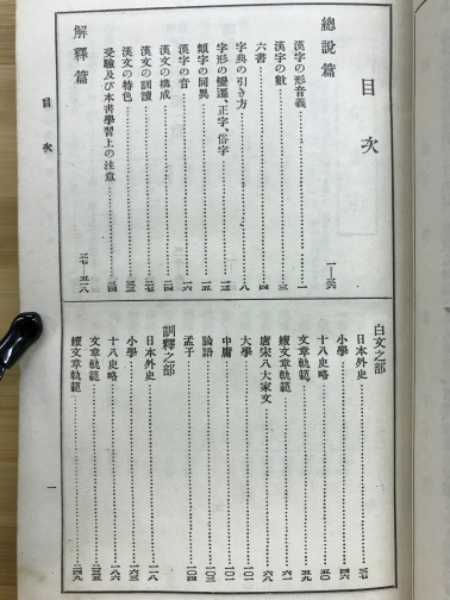 目次
總説篇 一―三六
漢字の形音義 一
漢字の數 三
六書 四
字典の引き方 八
字形の變遷、正字、俗字 一三
類字の同異 一五
漢字の音 一六
漢文の構成 二四
漢文の訓讀 二七
漢文の特色 三三
受驗及び本書學習上の注意 三四
解釋篇 三七―五一八
白文之部
日本外史 三七
小學 四六
十八史略 五〇
文章軌範 五九
續文章軌範 六一
唐宋八大家文 六八
大學 一〇一
中庸 一〇一
論語 一〇三
孟子 一〇四
訓釋之部
日本外史 一一八
小學 一六三
十八史略 一八六
文章軌範 二三五
續文章軌範 二四九
目次
一